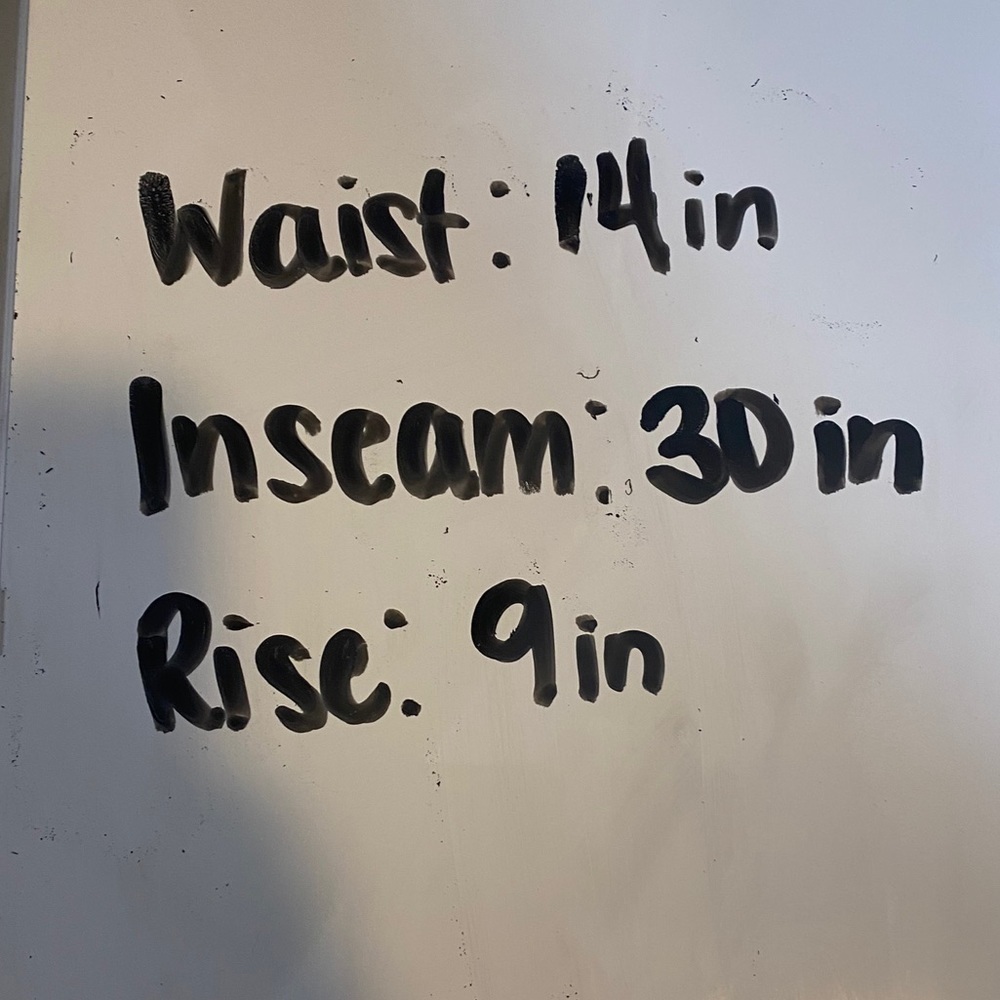 Waist: 14 in
Inseam: 30 in
Rise: 9 in